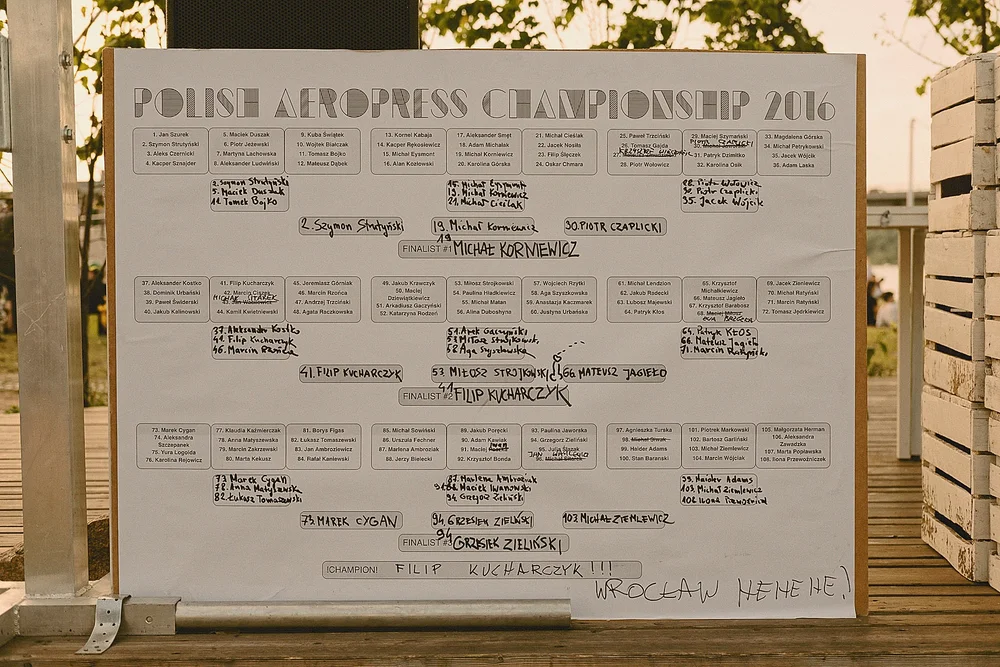 POLISH AEROPRESS CHAMPIONSHIP 2016
1. Jan Szurek
2. Szymon Strutyński
3. Aleks Czernicki
4. Kacper Sznajder
5. Maciek Duszak
6. Piotr Jeżewski
7. Martyna Lachowska
8. Aleksander Ludwiński
9. Kuba Świątek
10. Wojtek Białczak
11. Tomasz Bojko
12. Mateusz Dąbek
13. Kornel Kabaja
14. Kacper Rękosiewicz
15. Michał Eysmont
16. Alan Kozłowski
17. Aleksander Smęt
18. Adam Michalak
19. Michał Korniewicz
20. Karolina Górska
21. Michał Cieślak
22. Jacek Nosiła
23. Filip Ślęczek
24. Oskar Chmara
25. Paweł Trzciński
26. Tomasz Gajda
28. Piotr Wołowicz
29. Maciej Szymański
PIOTR CZAPLICKI
31. Patryk Dzimitko
32. Karolina Osik
33. Magdalena Górska
34. Piotr Makowski
35. Jacek Wójcik
36. Adam Laska
2. Szymon Strutyński
5. Maciek Duszak
11. Tomek Bojko
15. Michał Eysmont
19. Michał Korniewicz
21. Michał Cieślak
28. Piotr Wołowicz
30. Piotr Czaplicki
35. Jacek Wójcik
2. Szymon Strutyński
19. Michał Korniewicz
30. PIOTR CZAPLICKI
FINALIST #1 19 MICHAŁ KORNIEWICZ
37. Aleksander Kostko
38. Dominik Urbański
39. Paweł Świderski
40. Jakub Kalinowski
41. Filip Kucharczyk
44. Kamil Kwietniewski
45. Jeremiasz Górniak
46. Marcin Rzońca
47. Andrzej Trzciński
48. Agata Raczkowska
49. Jakub Krawczyk
50. Maciej
Dziewiątkiewicz
51. Arkadiusz Gaczyński
52. Katarzyna Rodzeń
53. Miłosz Strojkowski
54. Paulina Hładkiewicz
55. Michał Matan
56. Alina Duboshyno
57. Wojciech Rzytki
58. Aga Szyszkowska
59. Anastazja Kaczmarek
60. Justyna Urbańska
61. Michał Lendzion
62. Jakub Rodecki
63. Lubosz Majewski
64. Patryk Kłos
65. Krzysztof
Michałkiewicz
66. Mateusz Jagieło
67. Krzysztof Barabosz
69. Jacek Zieniewicz
70. Michał Ratyński
71. Marcin Ratyński
72. Tomasz Jędrkiewicz
37. Aleksander Kostko
41. Filip Kucharczyk
46. Marcin Rzońca
51. Arek Gaczyński
53. Miłosz Strojkowski
58. Aga Szyszkowska
64. Patryk KŁOS
66. Mateusz Jagieło
71. Marcin Ratyński
41. FILIP KUCHARCZYK
53. MIŁOSZ STROJKOWSKI
66. MATEUSZ JAGIEŁO
FINALIST #2 41 FILIP KUCHARCZYK
73. Marek Cygan
74. Aleksandra
Szczepanek
75. Yura Logoida
76. Karolina Rejowicz
77. Klaudia Kaźmierczak
78. Anna Matyszewska
79. Marcin Zakrzewski
80. Marta Kekusz
81. Borys Figas
82. Łukasz Tomaszewski
83. Jan Ambroziewicz
84. Rafał Kaniewski
85. Michał Sowiński
86. Urszula Fechner
87. Marlena Ambroziak
88. Jerzy Bielecki
89. Jakub Poręcki
90. Adam Kawiak
91. Maciej Iwan
92. Krzysztof Bonda
93. Paulina Jaworska
94. Grzegorz Zieliński
95. Julia Ślęzak
97. Agnieszka Turska
98. Michał Śliwak
99. Haider Adams
100. Stan Baranski
101. Piotrek Markowski
102. Bartosz Garliński
103. Michał Ziemlewicz
104. Marcin Wójciak
105. Małgorzata Herman
106. Aleksandra
Zawadzka
107. Marta Popławska
108. Ilona Przewoźniczek
73. Marek Cygan
78. Anna Matyszewska
82. Łukasz Tomaszewski
87. Marlena Ambroziak
91. Maciek Iwanowski
94. Grzegorz Zieliński
99. Haider Adams
103. Michał Ziemlewicz
73. MAREK CYGAN
94. GRZESIEK ZIELIŃSKI
103. MICHAŁ ZIEMLEWICZ
FINALIST #3 94 GRZESIEK ZIELIŃSKI
!CHAMPION! FILIP KUCHARCZYK!!!
WROCŁAW HEHEHE!